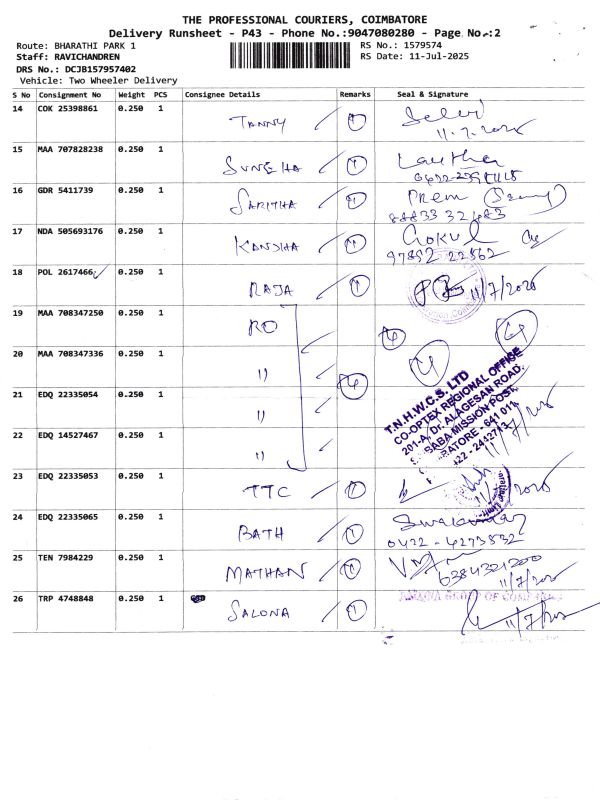 THE PROFESSIONAL COURIERS, COIMBATORE
Delivery Runsheet - P43 - Phone No.:9047080280 - Page No.:2
Route: BHARATHI PARK 1
RS No.: 1579574
Staff: RAVICHANDREN
RS Date: 11-Jul-2025
DRS No.: DCJB157957402
Vehicle: Two Wheeler Delivery
S No Consignment No Weight PCS Consignee Details Remarks Seal & Signature
14 COK 25398861 0.250 1 TANNY 1 Selvi
11.7.2025
15 MAA 707828238 0.250 1 SUNEHA 1 Lautha
16 GDR 5411739 0.250 1 SARITHA 1 Prem
88833 32683
17 NDA 505693176 0.250 1 KANSHA 1 Gokul
97892 22562
18 POL 2617466 0.250 1 RAJA 1 11/7/2025
19 MAA 708347250 0.250 1 RO 4
20 MAA 708347336 0.250 1 11 4
21 EDQ 22335054 0.250 1 11
22 EDQ 14527467 0.250 1 11
T.N.H.W.C.S. LTD
CO-OPTEX REGIONAL OFFICE
201-A, Dr. ALAGESAN ROAD,
BABA MISSION POST,
COIMBATORE - 641 011.
0422 - 2442713
11/7/2025
23 EDQ 22335053 0.250 1 TTC 1 11/7/2025
24 EDQ 22335065 0.250 1 BATH 1
0422 - 4273532
25 TEN 7984229 0.250 1 MATHAN 1
6384321200
11/7/2025
26 TRP 4748848 0.250 1 SALONA 1 GROUP OF COMPANIES
11/7/2025